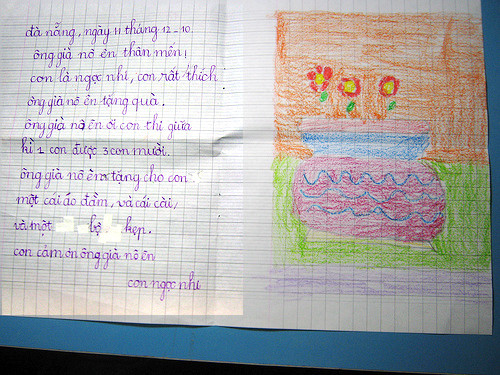 đà nẵng, ngày 11 tháng 12-10
ông già nô en thân mến!
con là ngọc nhi, con rất thích
ông già nô ên tặng quà.
ông già nô ên ơi con thi giữa
kì 1 con được 3 con mười.
ông già nô ên tặng cho con
một cái áo đầm, và cái cài,
và một bộ kẹp.
con cảm ơn ông già nô ên
con ngọc nhi